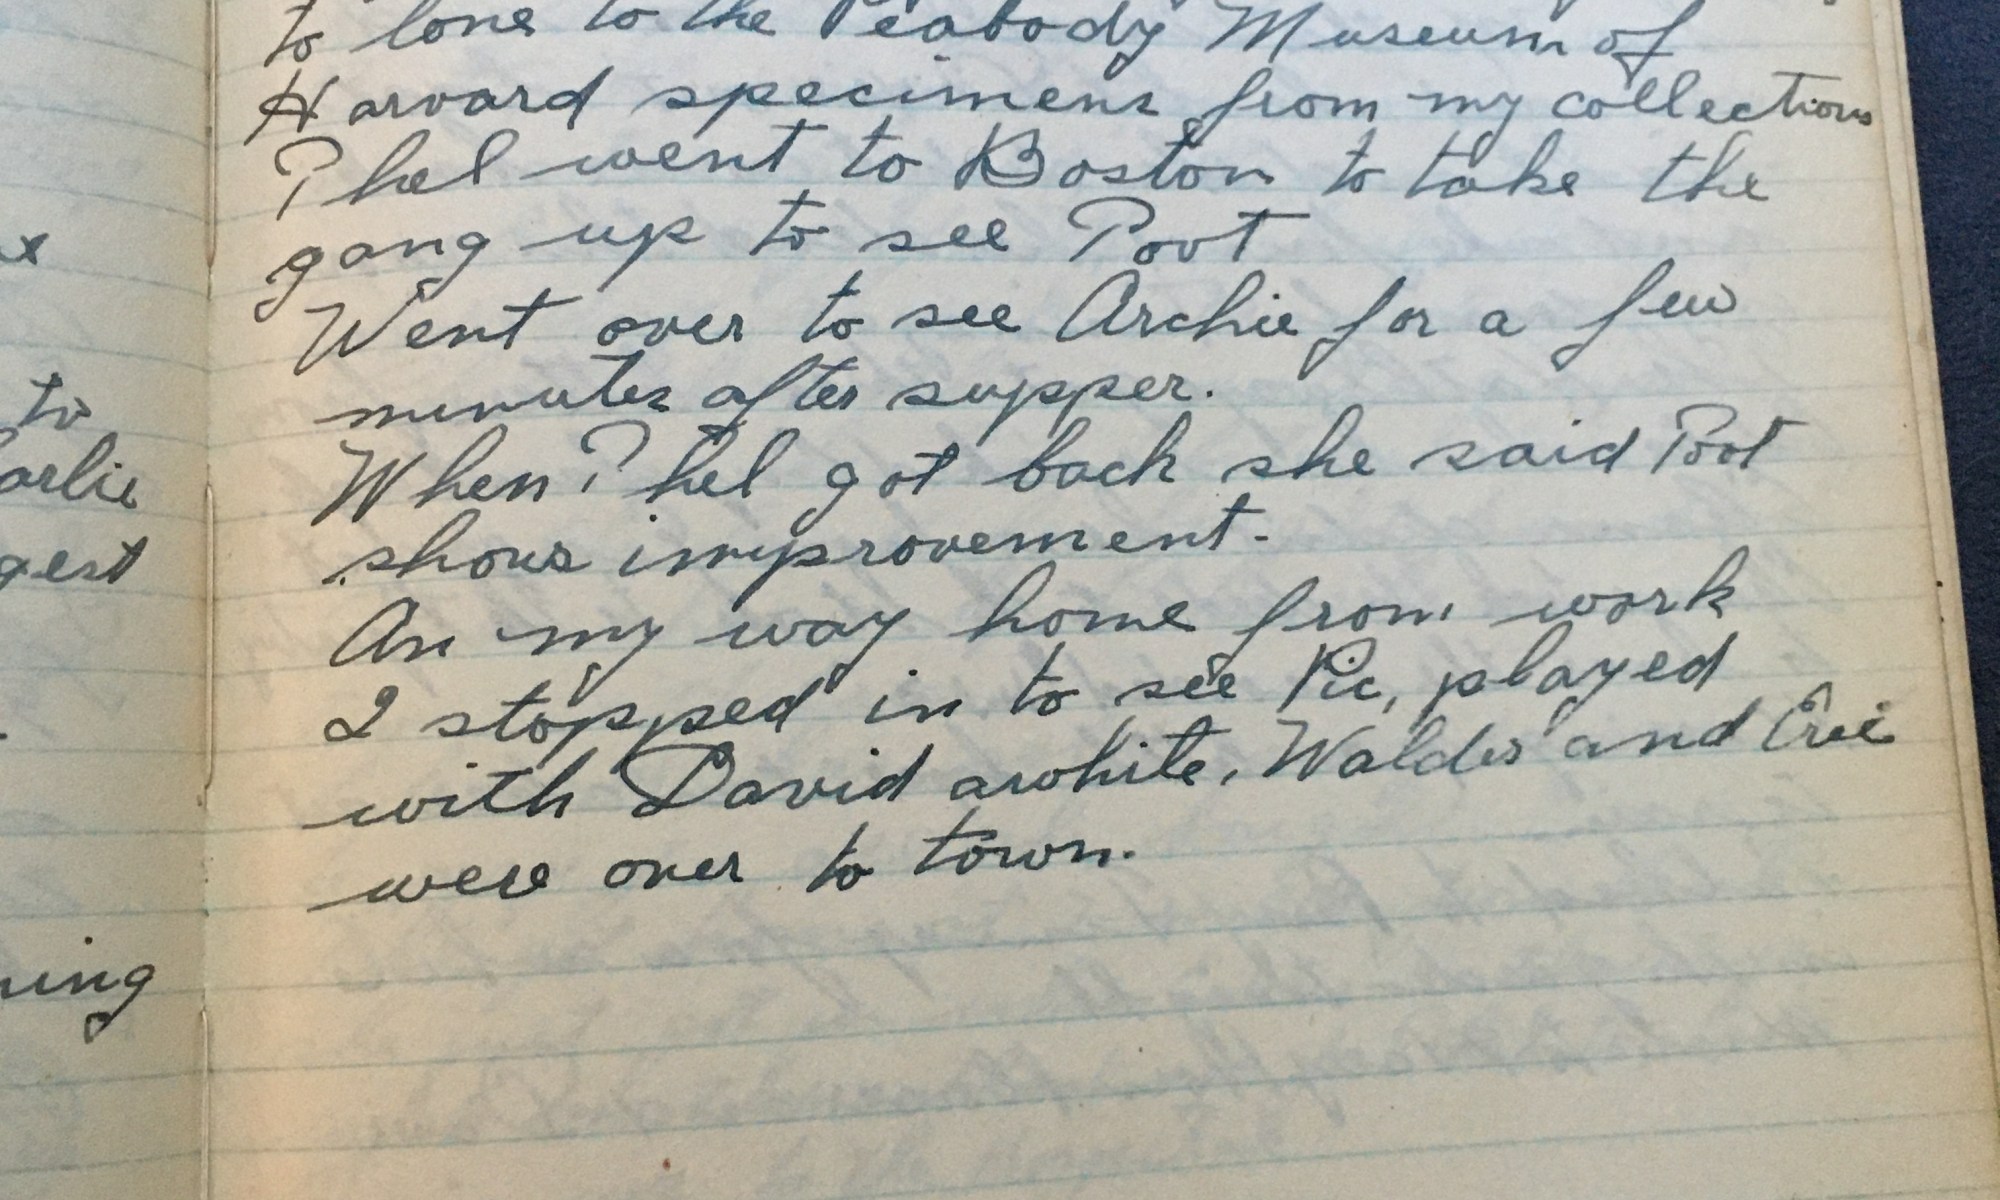 to lone to the Peabody Museum of
Harvard specimens from my collections
Phel went to Boston to take the
gang up to see Poot
Went over to see Archie for a few
minutes after supper.
When Phel got back she said Poot
shows improvement.
An my way home from work
I stopped in to see Pic, played
with David awhile, Waldo and Evie
were over to town.
to
arlie
gest
ning